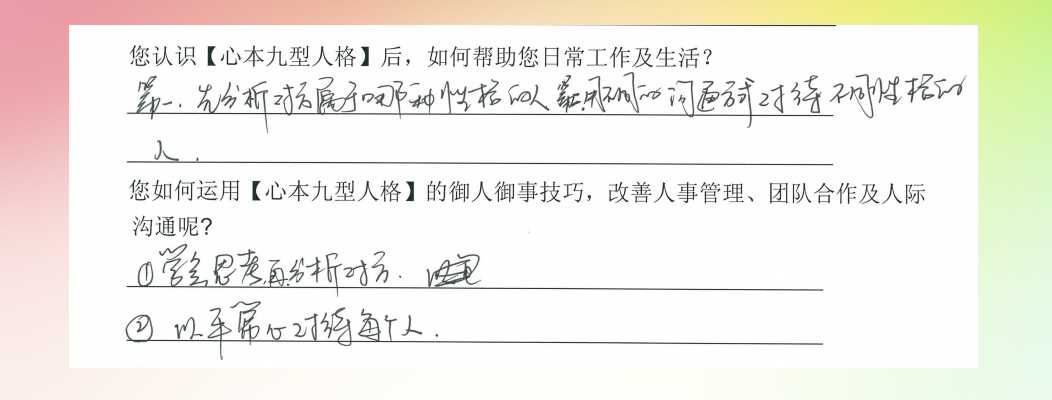 您认识【心本九型人格】后，如何帮助您日常工作及生活？
第一．先分析对方属于哪种性格的人 用不同的沟通方式对待不同性格的
人．
您如何运用【心本九型人格】的御人御事技巧，改善人事管理、团队合作及人际
沟通呢?
①学会思考再分析对方．
② 以平常心对待每个人．